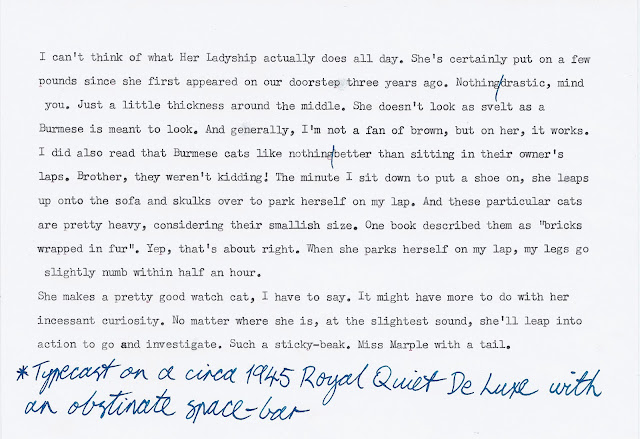 I can't think of what Her Ladyship actually does all day. She's certainly put on a few
pounds since she first appeared on our doorstep three years ago. Nothing/drastic, mind
you. Just a little thickness around the middle. She doesn't look as svelt as a
Burmese is meant to look. And generally, I'm not a fan of brown, but on her, it works.
I did also read that Burmese cats like nothing/better than sitting in their owner's
laps. Brother, they weren't kidding! The minute I sit down to put a shoe on, she leaps
up onto the sofa and skulks over to park herself on my lap. And these particular cats
are pretty heavy, considering their smallish size. One book described them as "bricks
wrapped in fur". Yep, that's about right. When she parks herself on my lap, my legs go
slightly numb within half an hour.
She makes a pretty good watch cat, I have to say. It might have more to do with her
incessant curiosity. No matter where she is, at the slightest sound, she'll leap into
action to go and investigate. Such a sticky-beak. Miss Marple with a tail.
*Typecast on a circa 1945 Royal Quiet De Luxe with
an obstinate space-bar